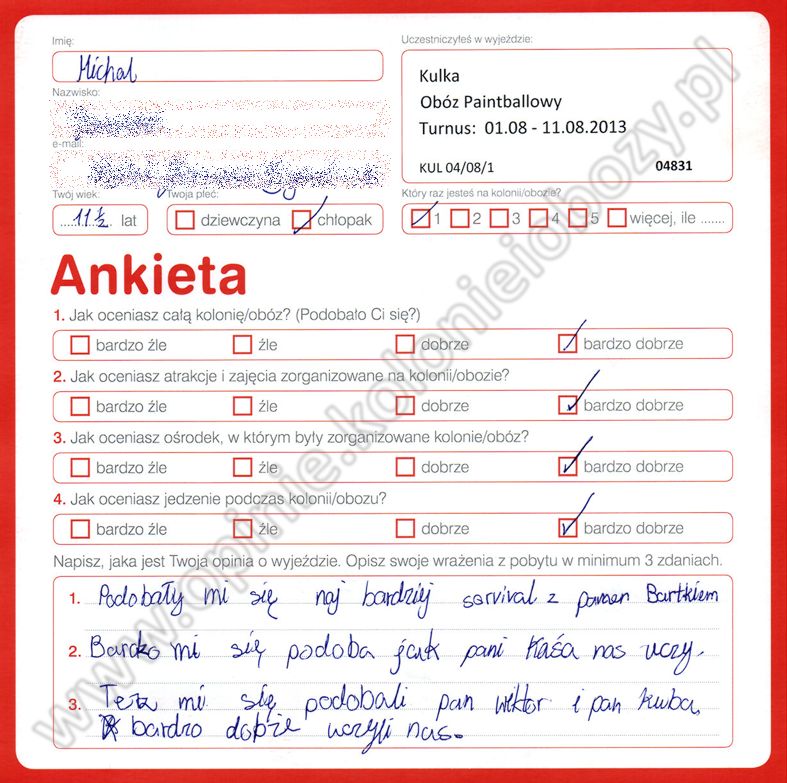 Imię:
Michał
Uczestniczyłeś w wyjeździe:
Kulka
Obóz Paintballowy
Turnus: 01.08 - 11.08.2013
KUL 04/08/1 04831
Nazwisko:
e-mail:
Twój wiek:
11 ½ lat
Twoja płeć:
dziewczyna chłopak
Który raz jesteś na kolonii/obozie?
1 2 3 4 5 więcej, ile .......
Ankieta
1. Jak oceniasz całą kolonię/obóz? (Podobało Ci się?)
bardzo źle źle dobrze bardzo dobrze
2. Jak oceniasz atrakcje i zajęcia zorganizowane na kolonii/obozie?
bardzo źle źle dobrze bardzo dobrze
3. Jak oceniasz ośrodek, w którym były zorganizowane kolonie/obóz?
bardzo źle źle dobrze bardzo dobrze
4. Jak oceniasz jedzenie podczas kolonii/obozu?
bardzo źle źle dobrze bardzo dobrze
Napisz, jaka jest Twoja opinia o wyjeździe. Opisz swoje wrażenia z pobytu w minimum 3 zdaniach.
1. Podobały mi się naj bardziej servival z Bartkiem
2. Bardzo mi się podoba jak pani Kasia nas uczy.
3. Też mi się podobali pan wiktor i pan kuba,
bardzo dobrze uczyli nas.
www.opinie.kolonieiobozy.pl